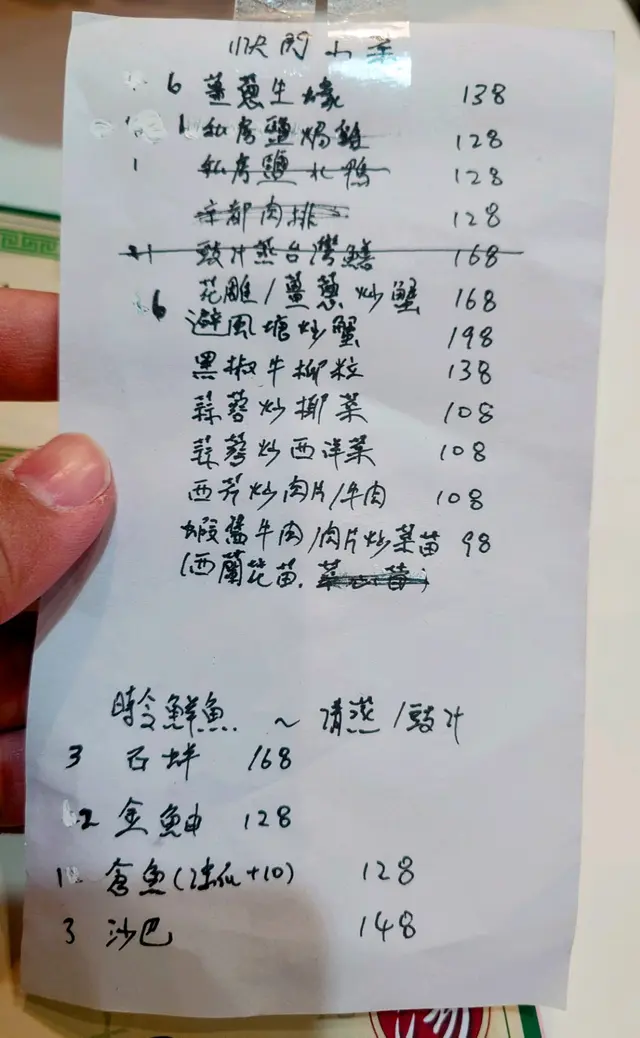 快閃小菜
6 薑蔥生蠔 138
1 私房鹽焗雞 128
1 私房鹽水鴨 128
京都肉排 128
1 豉汁蒸台灣鱔 168
6 花雕/薑蔥炒蟹 168
避風塘炒蟹 198
黑椒牛柳粒 138
蒜蓉炒椰菜 108
蒜蓉炒西洋菜 108
西芹炒肉片/牛肉 108
蝦醬牛肉/肉片炒菜苗 98
(西蘭花苗.
時令鮮魚 ~ 清蒸/豉汁
3 石蚌 168
2 金鯧 128
1 倉魚(涼瓜+10) 128
3 沙巴 148